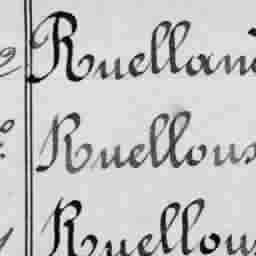 Ruelland
Ruellous
Ruellous